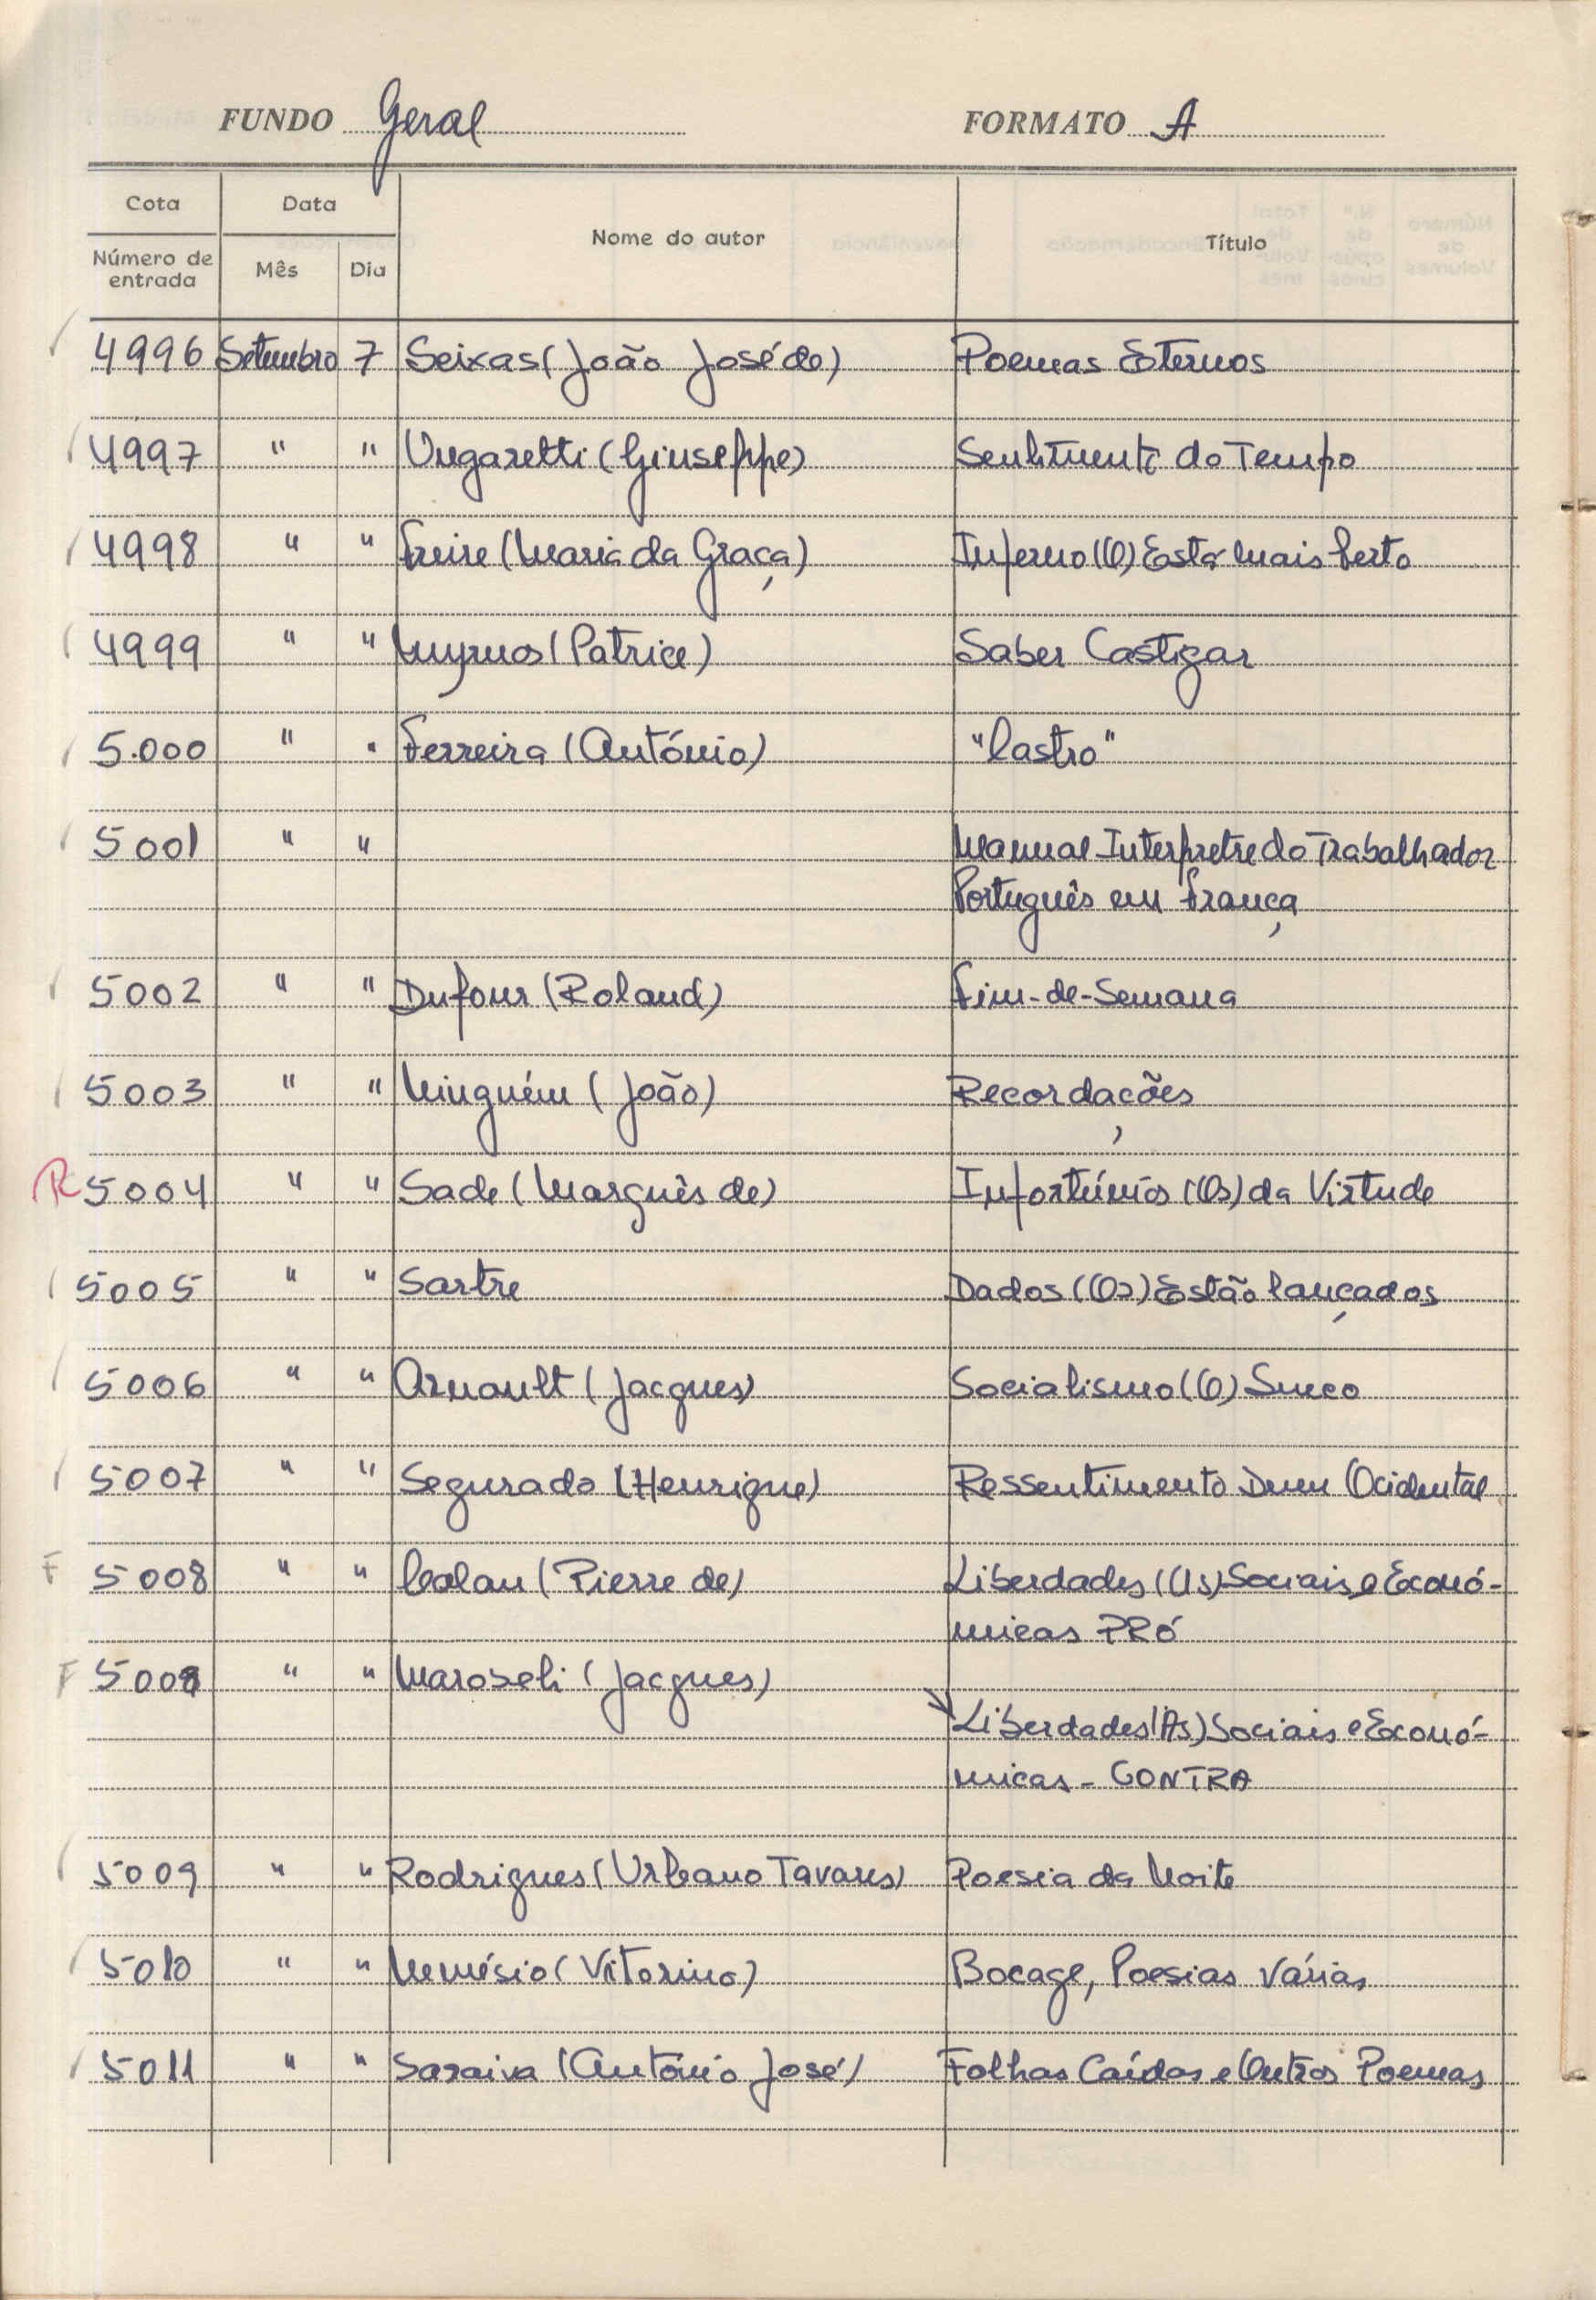 FUNDO Geral FORMATO A
Cota Data Nome do autor Título
Número de entrada Mês Dia
4996 Setembro 7 Seixas (João José de) Poemas Eternos
4997 " " Ungaretti (Giuseppe) Sentimento do Tempo
4998 " " Freire (Maria da Graça) Inferno (O) Está Mais Perto
4999 " " (Patrice) Saber Castigar
5.000 " " Ferreira (António) "Castro"
5001 " " Manual Interpretre do Trabalhador
Português em França
5002 " " Dufour (Roland) Fim-de-Semana
5003 " " Ninguém (João) Recordações
R 5004 " " Sade (Marquês de) Infortúnios (Os) da Virtude
5005 " " Sartre Dados (Os) Estão lançados
5006 " " Arnault (Jacques) Socialismo (O) Sueco
5007 " " Segurado (Henrique) Ressentimento Dum Ocidental
F 5008 " " Calan (Pierre de) Liberdades (As) Sociais e Econó-
micas PRÓ
F 5008 " " Maroseli (Jacques)
Liberdades (As) Sociais e Econó-
micas - CONTRA
5009 " " Rodrigues (Urbano Tavares) Poesia da Noite
5010 " " Nemésio (Vitorino) Bocage, Poesias Várias
5011 " " Saraiva (António José) Folhas Caídas e Outros Poemas